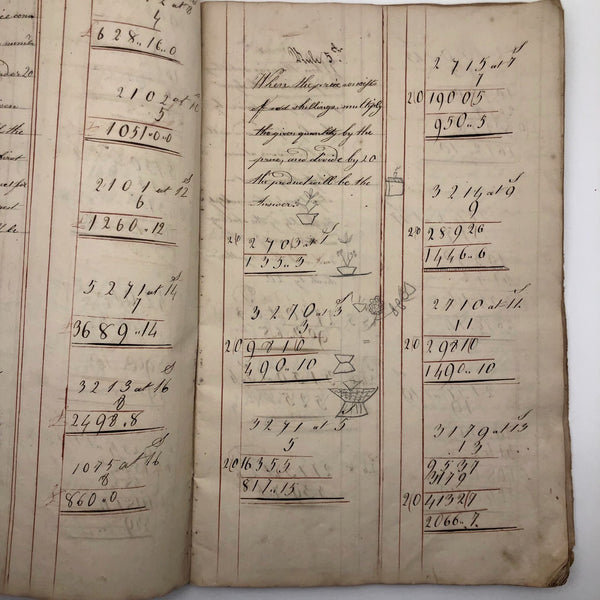 4
£628..16..0
2102 at 10
5
£1051..0..0
2101 at 12
6
£1260..12
5271 at 14 S
7
3689..14
3213 at 16 S
8
£2498..8
1075 at 16 S
8
£860..0
Rule 5d.
When the price consists
of odd shillings, multiply
the given quantity by the
price, and divide by 20
the product will be the
Answer.
20 2703 at 1 S
135..3
3270 at 3 S
3
20 9810
490..10
3271 at 5 S
5
20 16355
817..15
2715 at 7 S
7
20 19005
950..5
3214 at 9 S
9
20 28926
1446..6
2710 at 11 S
11
20 29810
1490..10
3179 at 13 S
13
9537
3179
20 41327
2066..7